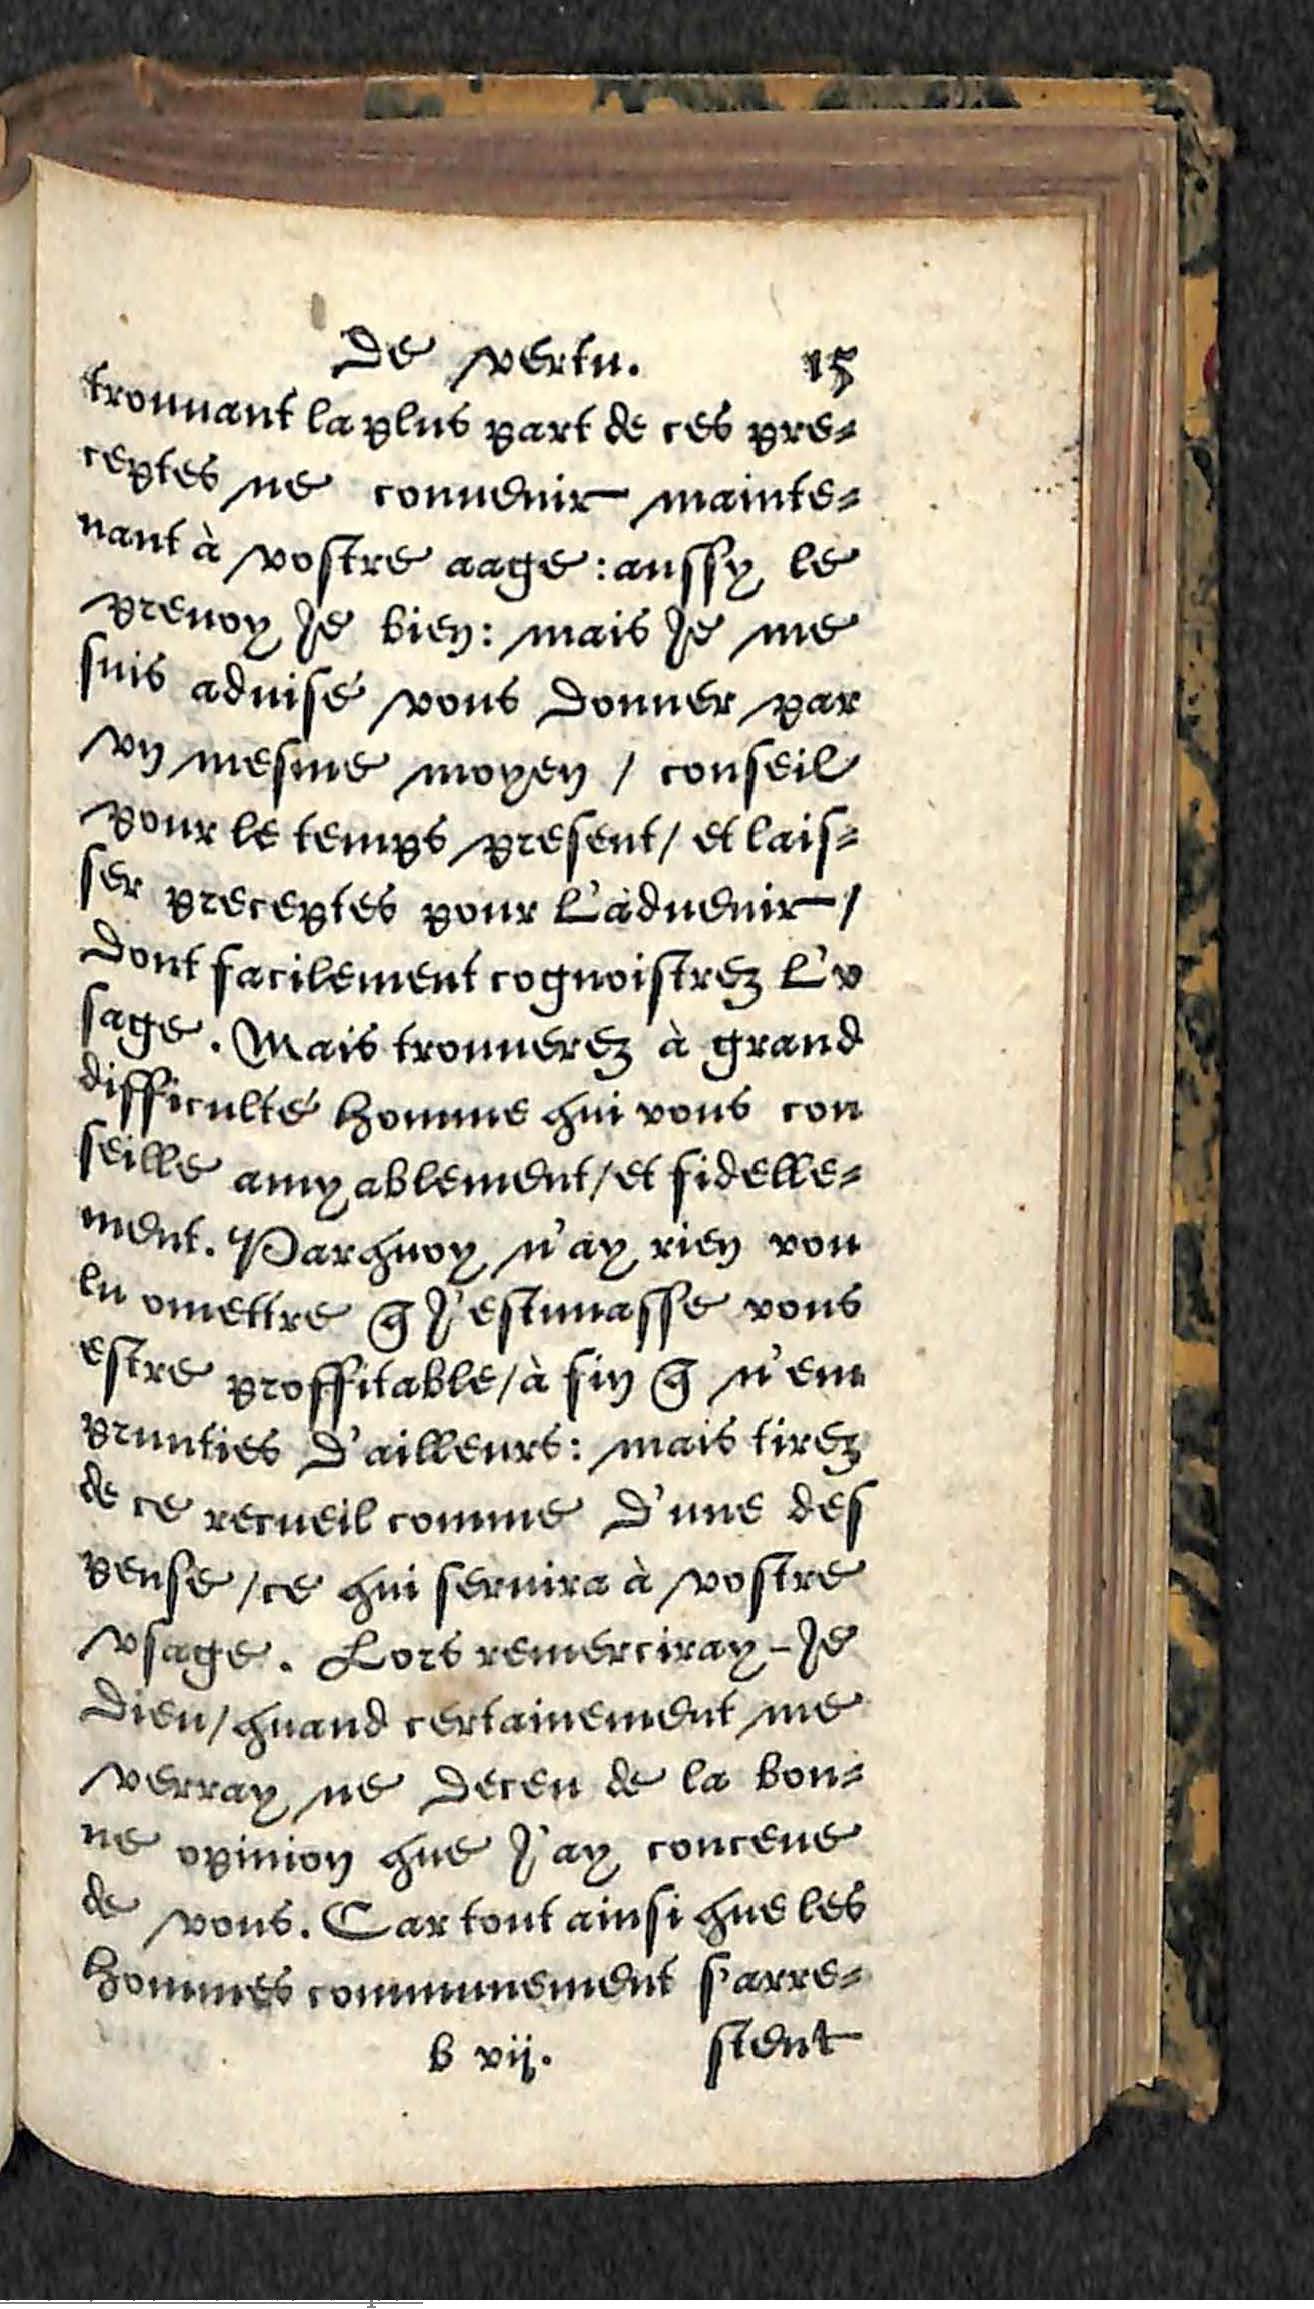 De vertu. 15
trouuant la plus part de ces pre=
ceptes ne conuenir mainte=
nant à vostre aage : aussy le
preuoy Je bien : mais Je me
suis aduisé vous donner par
vn mesme moyen / conseil
pour le temps present / et lais=
ser preceptes pour L'àduenir /
Dont facilement cognoistrez L'v
sage. Mais trouuerez à grand
difficulté homme qui vous con
seille amyablement / et fidelle=
ment. Parquoy n'ay rien vou
lu omettre q̃ J'estimasse vous
estre proffitable / à fin q̃ n'em
prunties D'ailleurs : mais tirez
de ce recueil comme D'une des
pense / ce qui seruira à vostre
vsage. Lors remerciray-Je
Dieu / quand certainement me
verray ne deceu de la bon=
ne opinion que J'ay conceue
de vous. Car tout ainsi que les
hommes communement s'arre=
b vij. stent